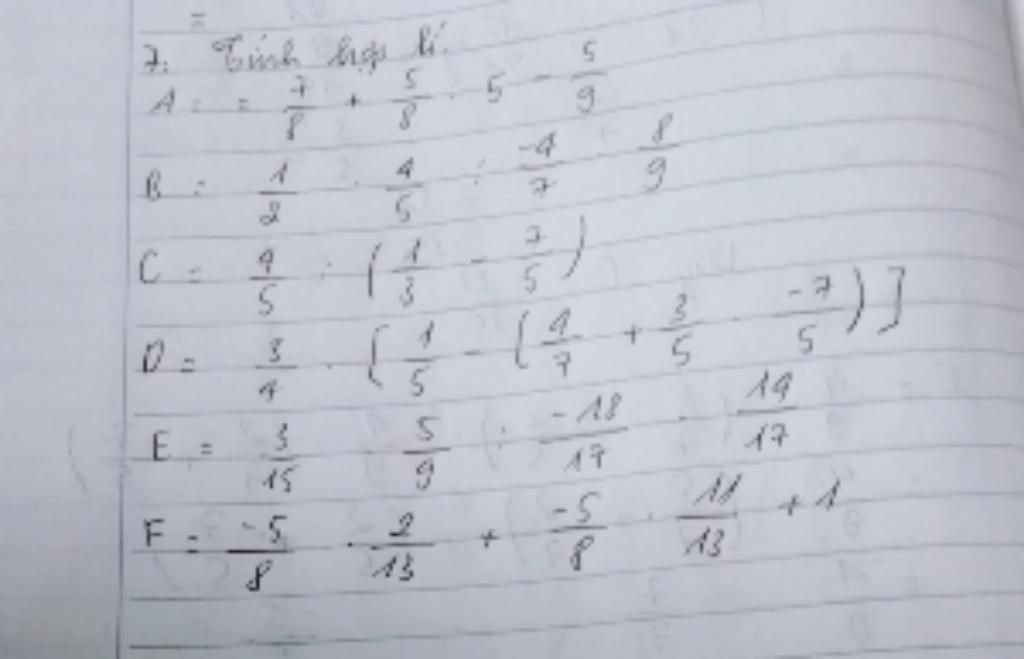 =
7. Tính hợp lí.
A = = 7/8 + 5/8 . 5 - 5/9
B = 1/2 . 4/5 : -4/7 . 8/9
C = 4/5 : (1/3 - 7/5)
D = 3/4 . [1/5 - (4/7 + 3/5 . -7/5)]
E = 3/15 . 5/9 : -18/17 . 14/17
F = -5/8 . 2/13 + -5/8 . 11/13 + 1